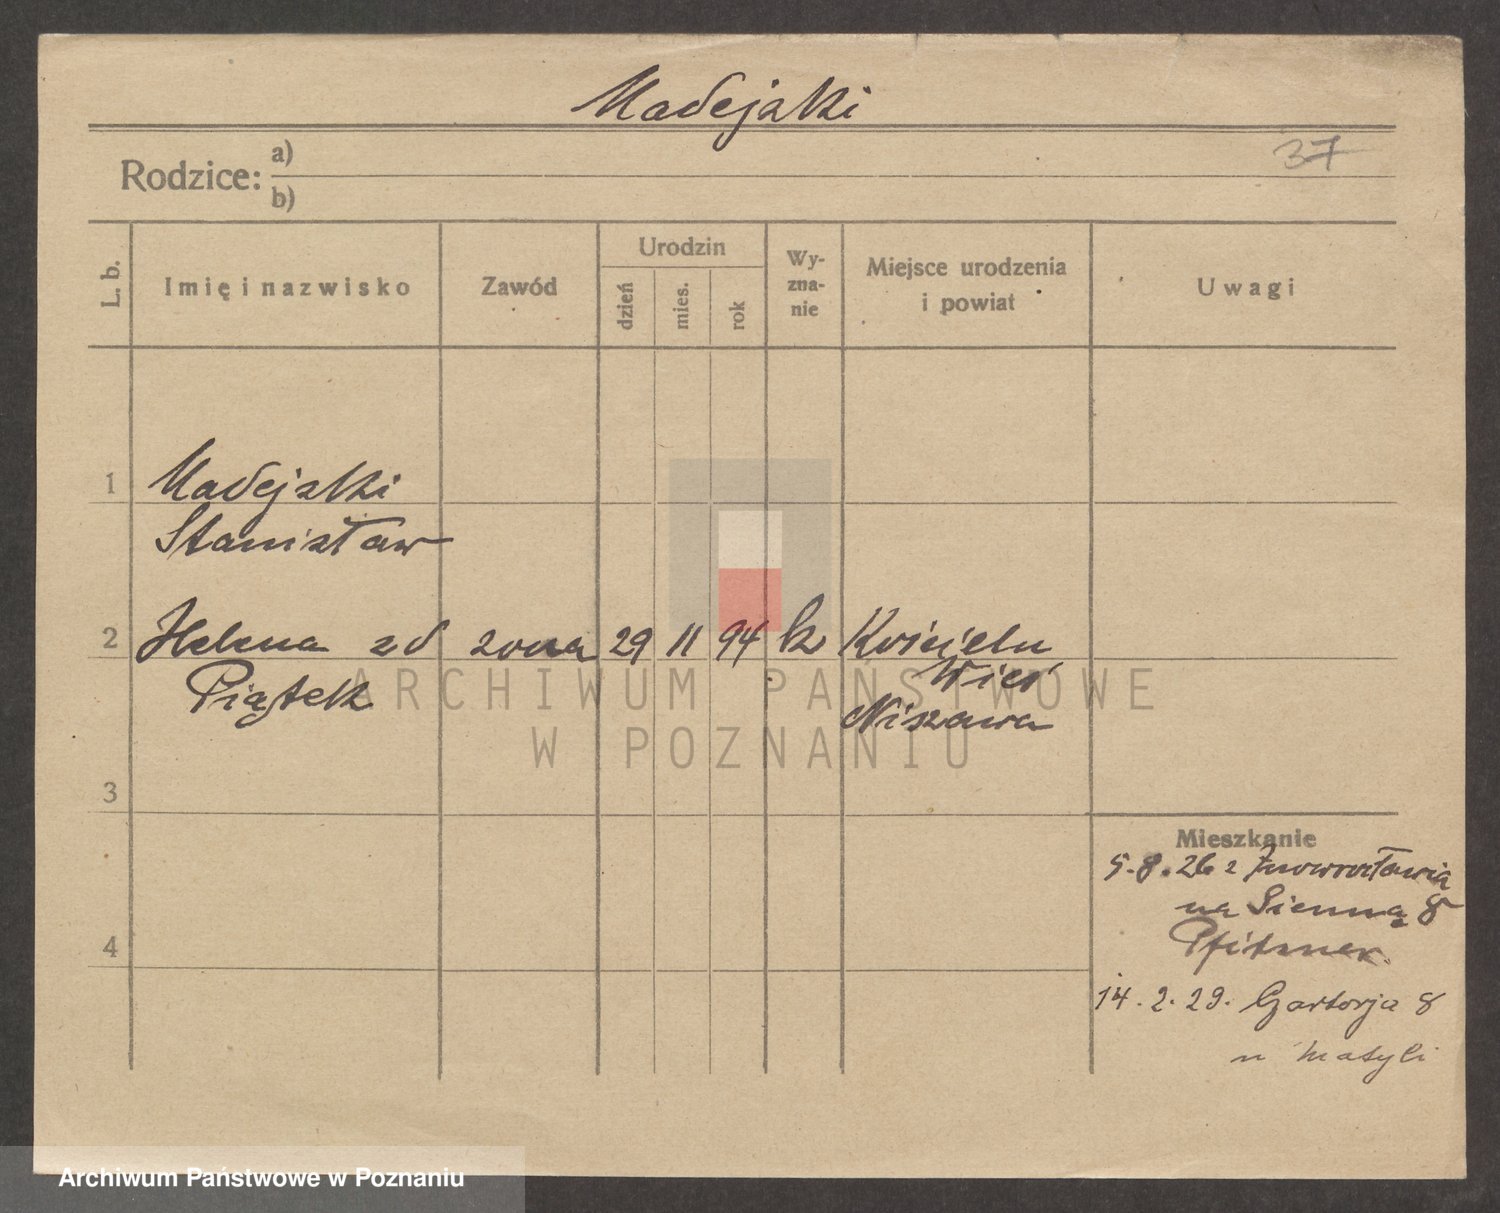 Madejski
37
Rodzice: a)
b)
L. b.
Imię i nazwisko
Zawód
Urodzin
dzień
mies.
rok
Wy-
zna-
nie
Miejsce urodzenia
i powiat
Uwagi
1
Madejski
Stanisław
2
Helena zd
żona
29
11
94
k
Kościelna
Wieś
Piątek
Niszawa
ARCHIWUM PAŃSTWOWE
W POZNANIU
3
4
Mieszkanie
5.8.26 z Inowrocławia
na Sienną 8
Pfitzner.
14.2.29. 8
u Matyli
Archiwum Państwowe w Poznaniu